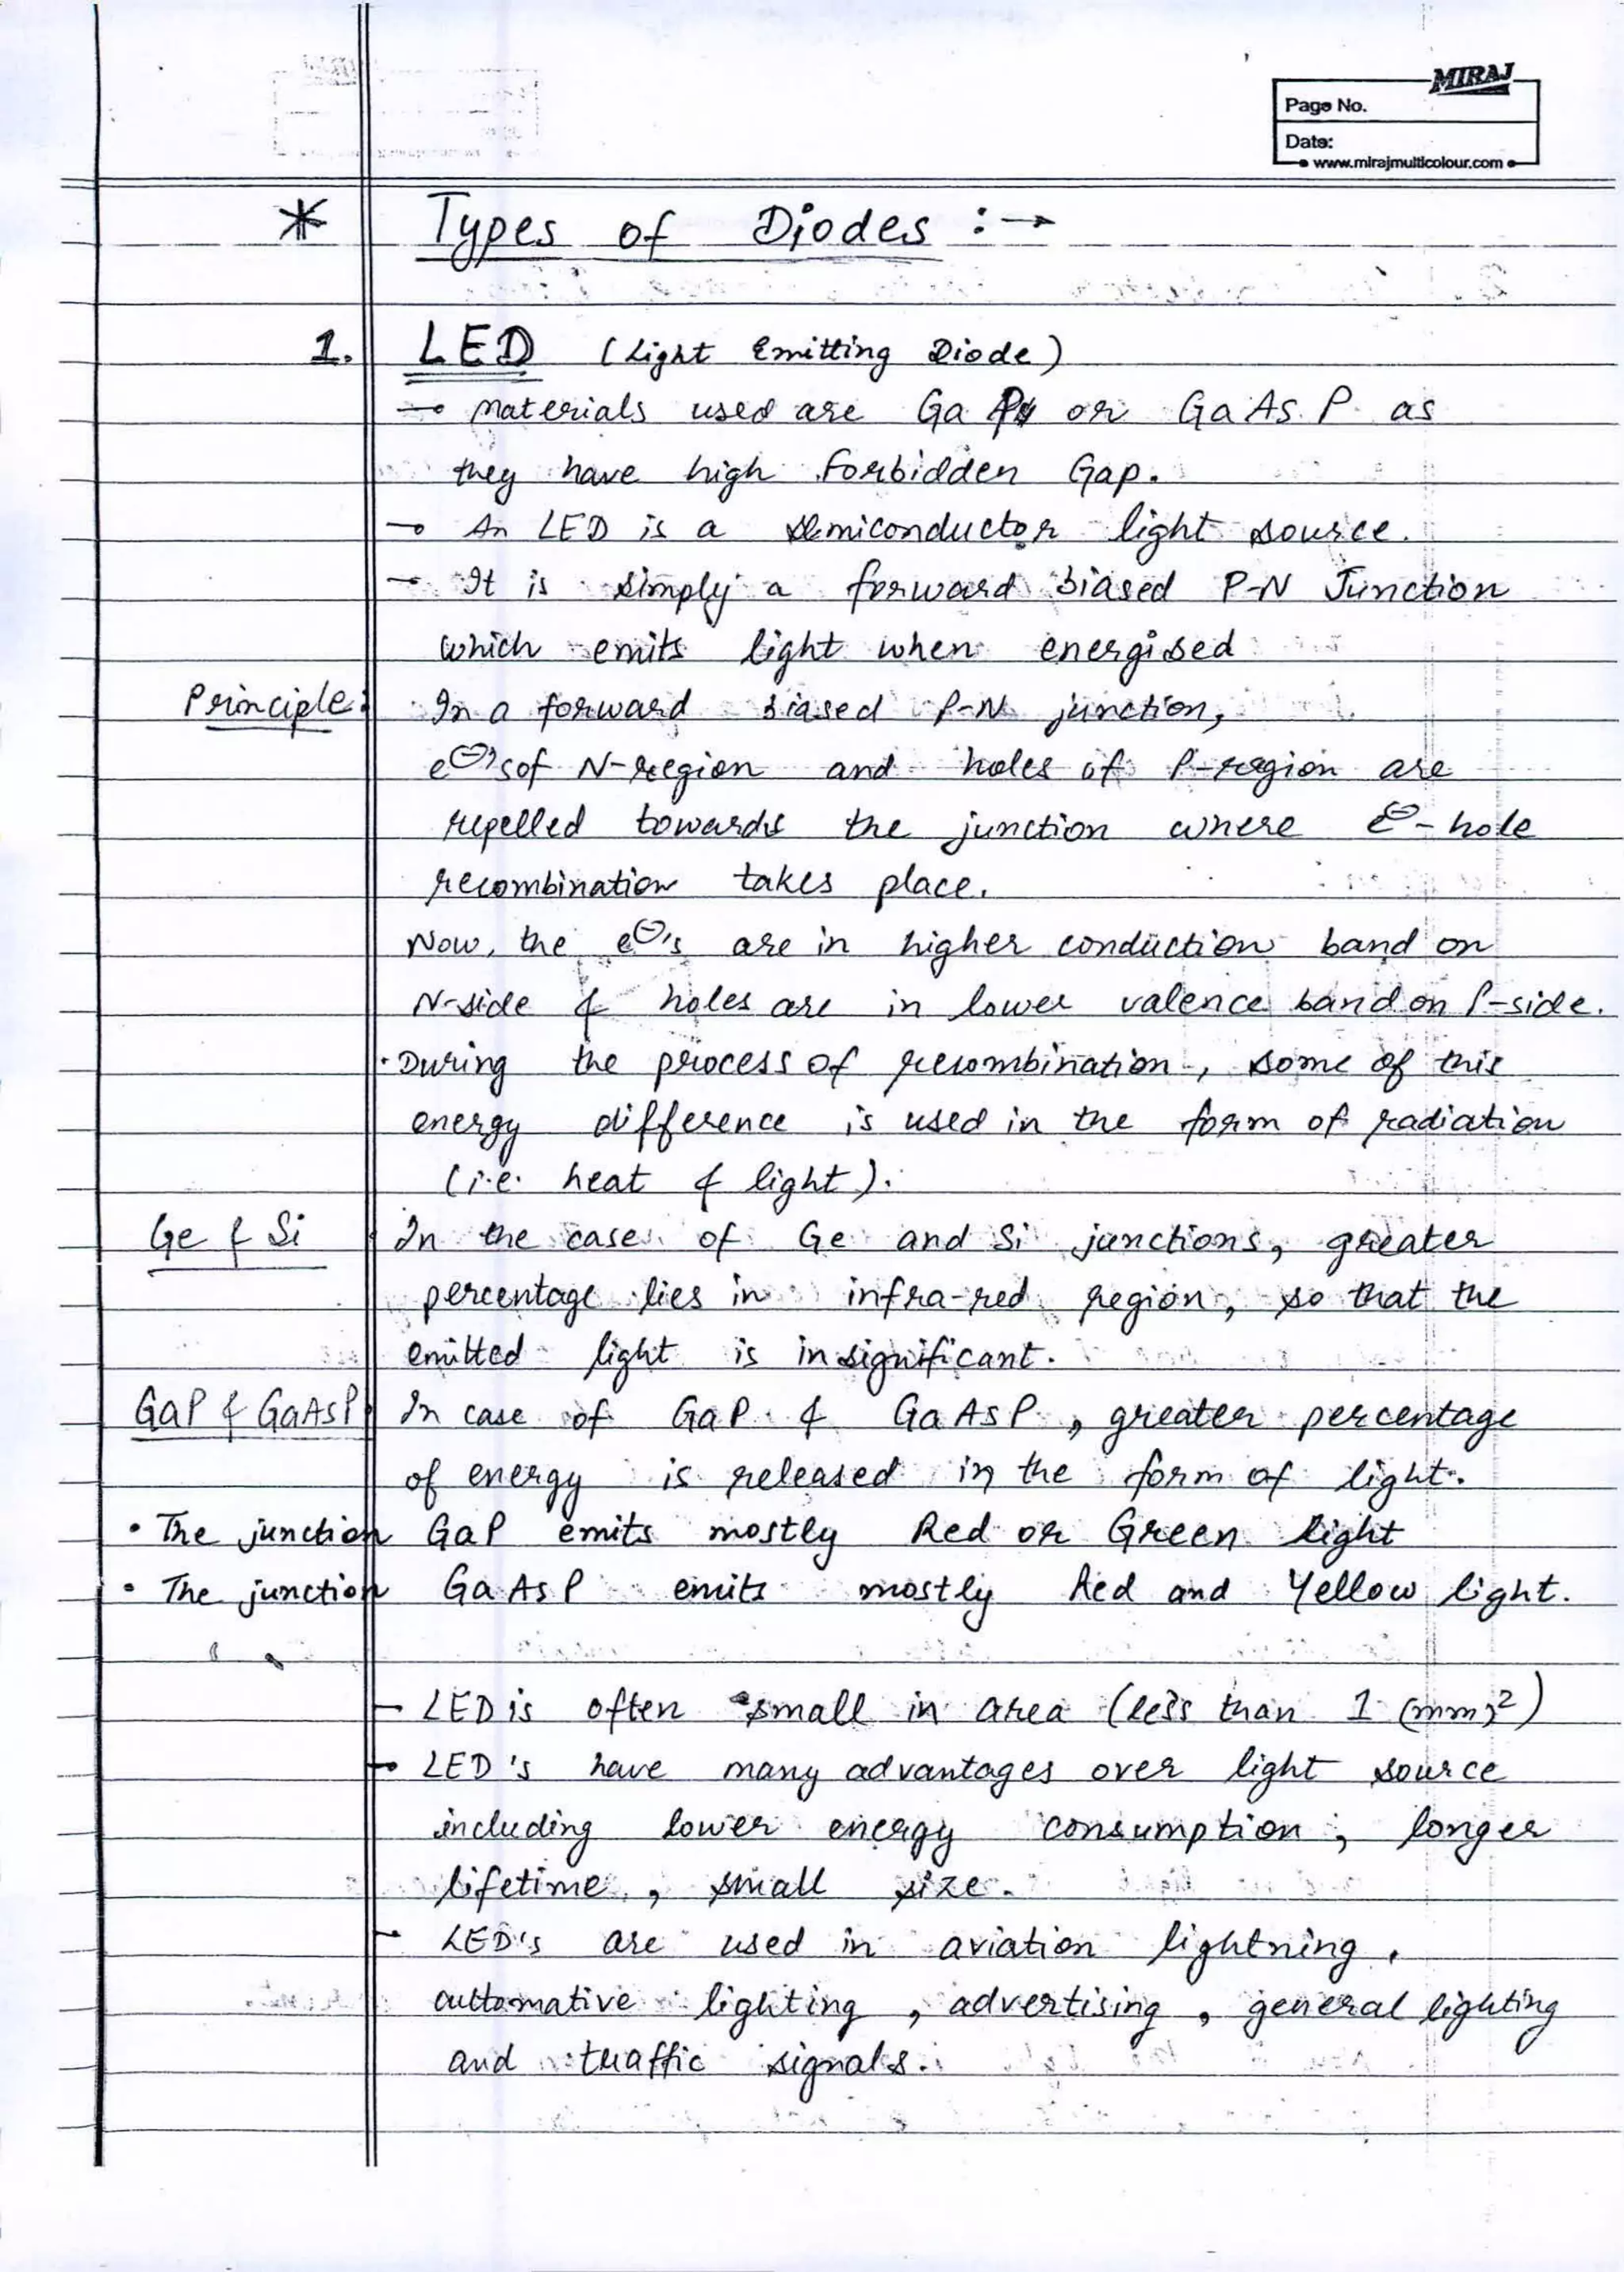 MIRAJ
Page No.
Date:
www.mirajmulticolour.com
* Types of Diodes :→
1. LED (Light Emitting Diode)
→ Materials used are GaP or GaAsP as
they have high Forbidden Gap.
→ An LED is a semiconductor light source.
→ It is simply a forward biased P-N Junction
which emits light when energised
Principle: In a forward biased P-N junction,
e⊖'s of N-region and holes of P-region are
repelled towards the junction where e⊖-hole
recombination takes place.
Now, the e⊖'s are in higher conduction band on
N-side & holes are in lower valence band on P-side.
· During the process of recombination, some of this
energy difference is used in the form of radiation
(i.e. heat & light).
Ge & Si In the case of Ge and Si junctions, greater
percentage lies in infra-red region, so that the
emitted light is insignificant.
GaP & GaAsP In case of GaP & GaAsP, greater percentage
of energy is released in the form of light.
• The junction GaP emits mostly Red or Green light
• The junction GaAsP emits mostly Red and Yellow light.
→ LED is often small in area (less than 1 (mm)²)
→ LED's have many advantages over light source
including lower energy consumption, longer
lifetime, small size.
→ LED's are used in aviation lightning,
automative lighting, advertising, general lighting
and traffic signals.